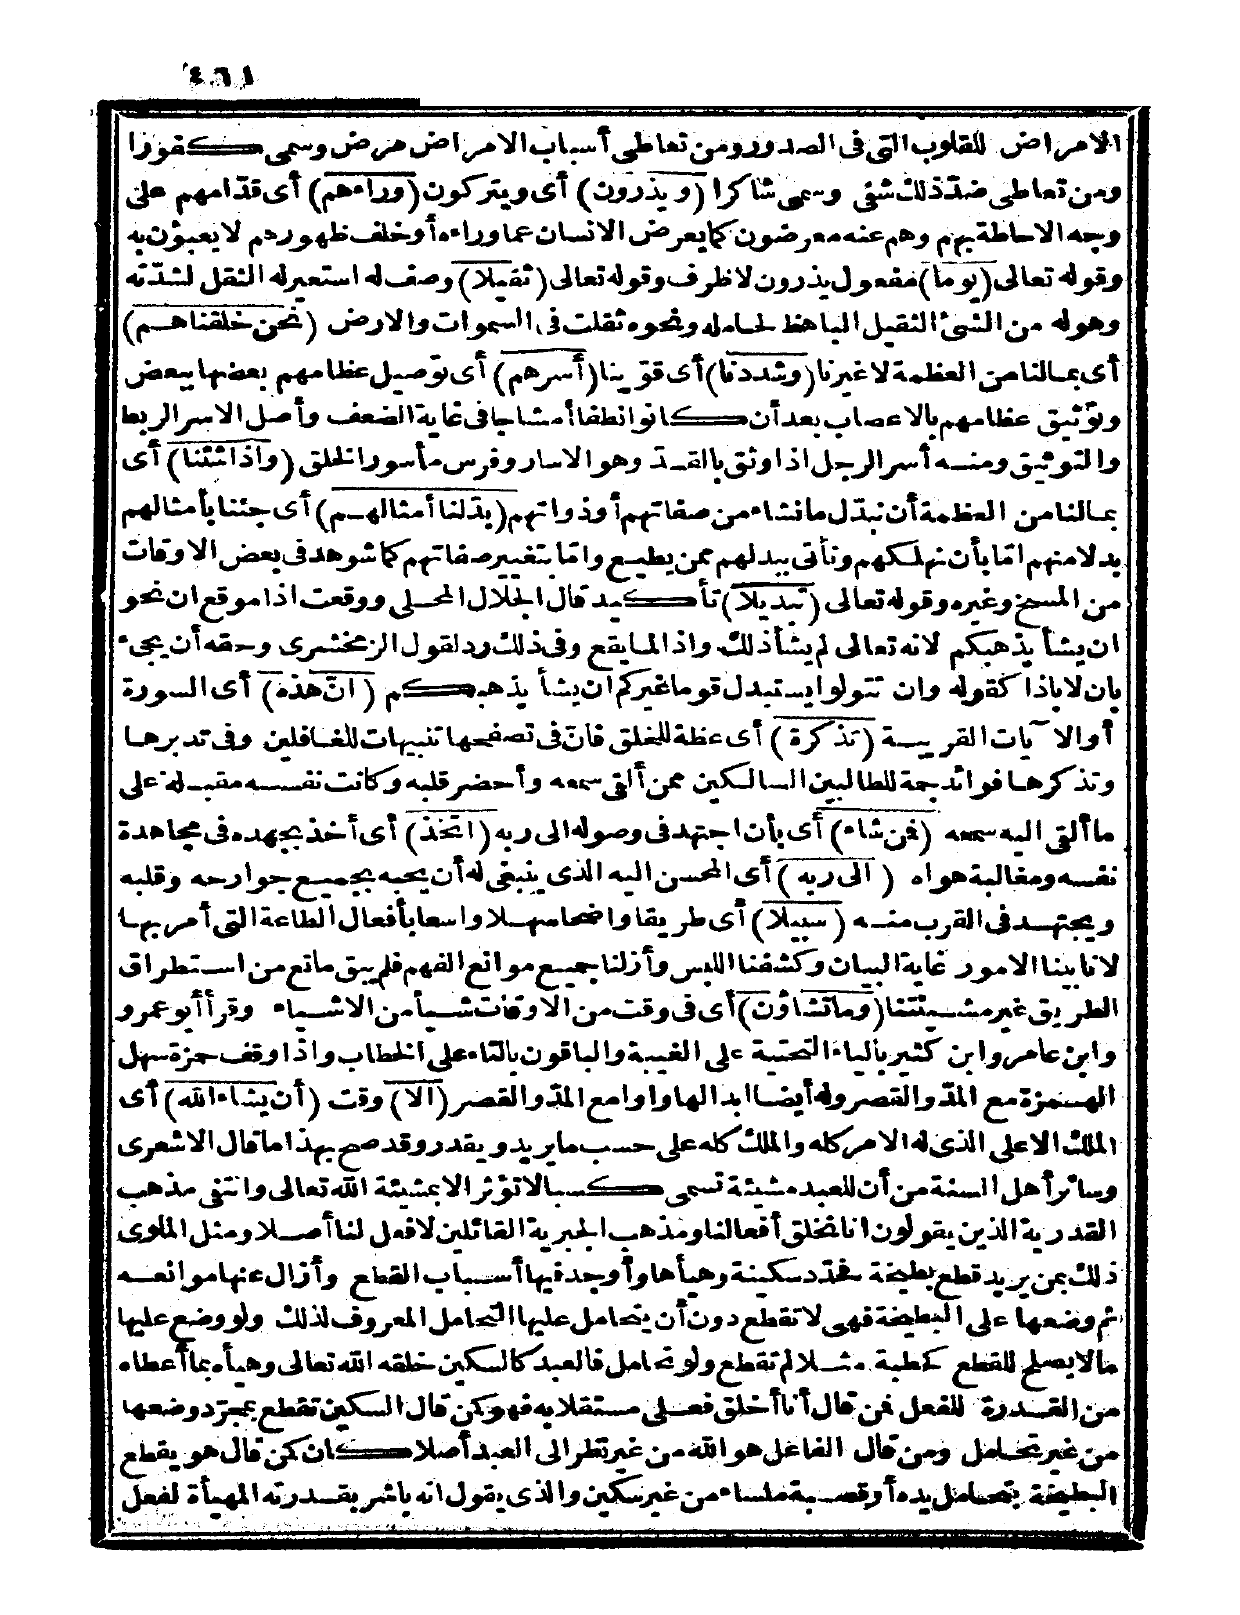 ٤٦١
الامراض للقلوب التي في الصدور ومن تعاطى أسباب الامراض مرض وسمى كفورا
ومن تعاطى ضدّ ذلك شفي وسمى شاكرا (ويذرون) أى ويتركون (وراءهم) أى قدّامهم على
وجه الاحاطة بهم وهم عنه معرضون كما يعرض الانسان عما وراءه أو خلف ظهورهم لا يعبؤن به
وقوله تعالى (يوما) مفعول يذرون لا ظرف وقوله تعالى (ثقيلا) وصف له استعير له الثقل لشدّته
وهوله من الشئ الثقيل الباهظ لحامله ونحوه ثقلت في السموات والارض (نحن خلقناهم)
أى بمالنا من العظمة لا غيرنا (وشددنا) أى قوّينا (أسرهم) أى توصيل عظامهم بعضها ببعض
وتوثيق عظامهم بالاعصاب بعد أن كانوا نطفا أمشاجا في غاية الضعف وأصل الاسر الربط
والتوثيق ومنه أسر الرجل اذا وثق بالقدّ وهو الاسار وفرس مأسور الخلق (واذا شئنا) أى
بمالنا من العظمة أن نبدّل ما نشاء من صفاتهم أو ذواتهم (بدّلنا أمثالهم) أى جئنا بأمثالهم
بدلا منهم امّا بأن نهلكهم ونأتى ببدلهم ممن يطيع وامّا بتغيير صفاتهم كما شوهد في بعض الاوقات
من المسخ وغيره وقوله تعالى (تبديلا) تأكيد قال الجلال المحلى ووقعت اذا موقع ان نحو
ان يشأ يذهبكم لانه تعالى لم يشأ ذلك واذا لما يقع وفى ذلك رد لقول الزمخشرى وحقه أن يجىء
بان لا باذا كقوله وان تتولوا يستبدل قوما غيركم ان يشأ يذهبكم (انّ هذه) أى السورة
أو الآيات القريبة (تذكرة) أى عظة للخلق فانّ في تصفحها تنبيهات للغافلين وفى تدبرها
وتذكرها فوائد جمة للطالبين السالكين ممن ألقى سمعه وأحضر قلبه وكانت نفسه مقبلة على
ما ألقى اليه سمعه (فمن شاء) أى بأن اجتهد في وصوله الى ربه (اتخذ) أى أخذ بجهده في مجاهدة
نفسه ومغالبة هواه (الى ربه) أى المحسن اليه الذى ينبغى له أن يحبه بجميع جوارحه وقلبه
ويجتهد في القرب منه (سبيلا) أى طريقا واضحا سهلا واسعا بأفعال الطاعة التي أمر بها
لانا بينا الامور غاية البيان وكشفنا اللبس وأزلنا جميع موانع الفهم فلم يبق مانع من استطراق
الطريق غير مشيئتنا (وما تشاؤن) أى في وقت من الاوقات شيأ من الاشياء وقرأ أبو عمرو
وابن عامر وابن كثير بالياء التحتية على الغيبة والباقون بالتاء على الخطاب واذا وقف حمزة سهل
الهمزة مع المدّ والقصر وله أيضا ابدالها واوا مع المدّ والقصر (الا) وقت (أن يشاء الله) أى
الملك الاعلى الذى له الامر كله والملك كله على حسب ما يريد ويقدر وقد صح بهذا ما قال الاشعرى
وسائر أهل السنة من أن للعبد مشيئة تسمى كسبا لا تؤثر الا بمشيئة الله تعالى وانتفى مذهب
القدرية الذين يقولون انا نخلق أفعالنا ومذهب الجبرية القائلين لا فعل لنا أصلا ومثل الملوى
ذلك بمن يريد قطع بطيخة فحدّد سكينة وهيأها وأوجد فيها أسباب القطع وأزال عنها موانعه
ثم وضعها على البطيخة فهى لا تقطع دون أن يتحامل عليها التحامل المعروف لذلك ولو وضع عليها
مالا يصلح للقطع كحطبة مثلا لم تقطع ولو تحامل فالعبد كالسكين خلقه الله تعالى وهيأه بما أعطاه
من القدرة للفعل فمن قال أنا أخلق فعلى مستقلا به فهو كمن قال السكين تقطع بمجرّد وضعها
من غير تحامل ومن قال الفاعل هو الله من غير نظر الى العبد أصلا كان كمن قال هو يقطع
البطيخة بتحامل يده أو قصبة ملساء من غير سكين والذى يقول انه باشر بقدرته المهيأة لفعل